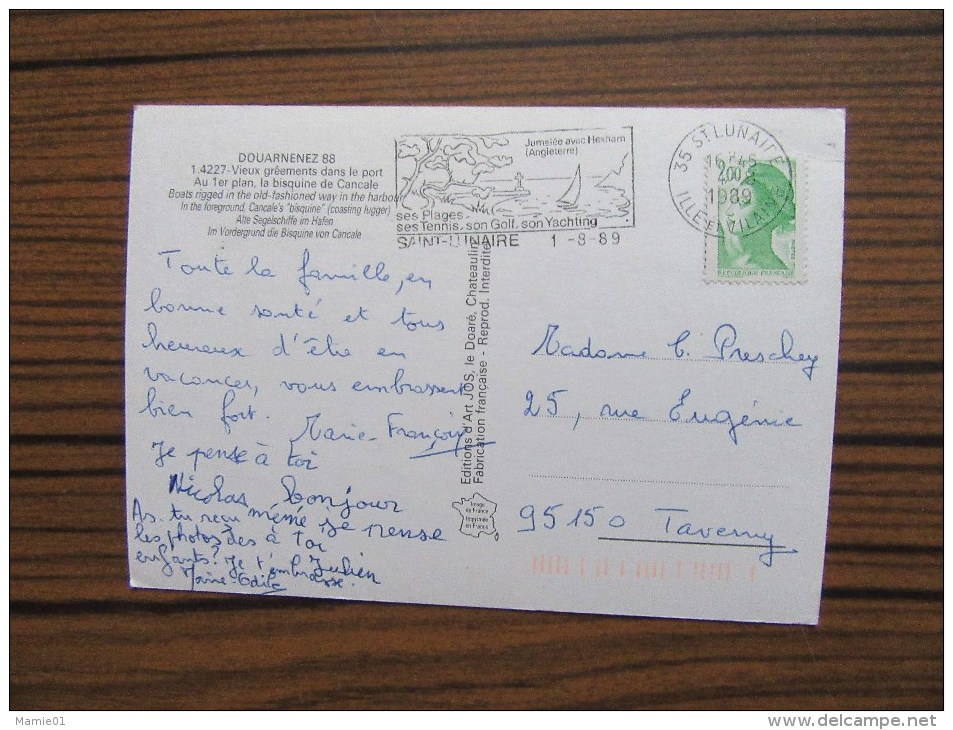 DOUARNENEZ 88
1.4227-Vieux gréements dans le port
Au 1er plan, la bisquine de Cancale
Boats rigged in the old-fashioned way in the harbour
In the foreground, Cancale's "bisquine" (coasting lugger)
Alte Segelschiffe im Hafen
Im Vordergrund die Bisquine von Cancale
Jumelée avec Hexham
(Angleterre)
ses Plages
ses Tennis, son Golf, son Yachting
SAINT-LUNAIRE 1 -8-89
35 ST LUNAIRE
16 H45
1989
ILLE ET VILAINE
2,00
REPUBLIQUE FRANÇAISE
Toute la famille, en
bonne santé et tous
heureux d'être en
vacances, vous embrassent
bien fort.
Marie-Françoise
Je pense à toi
Nicolas bonjour
mémé je pense
à toi
Julien
As-tu reçu
les photos des
enfants? Je t'embrasse.
Marie-Odile
Editions d'Art JOS, le Doaré, Chateaulin
Fabrication française - Reprod. Interdite
Image
de France
Imprimée
en France
Madame C. Preschey
25, rue Eugénie
95150 Taverny
Mamie01
delcampe.net